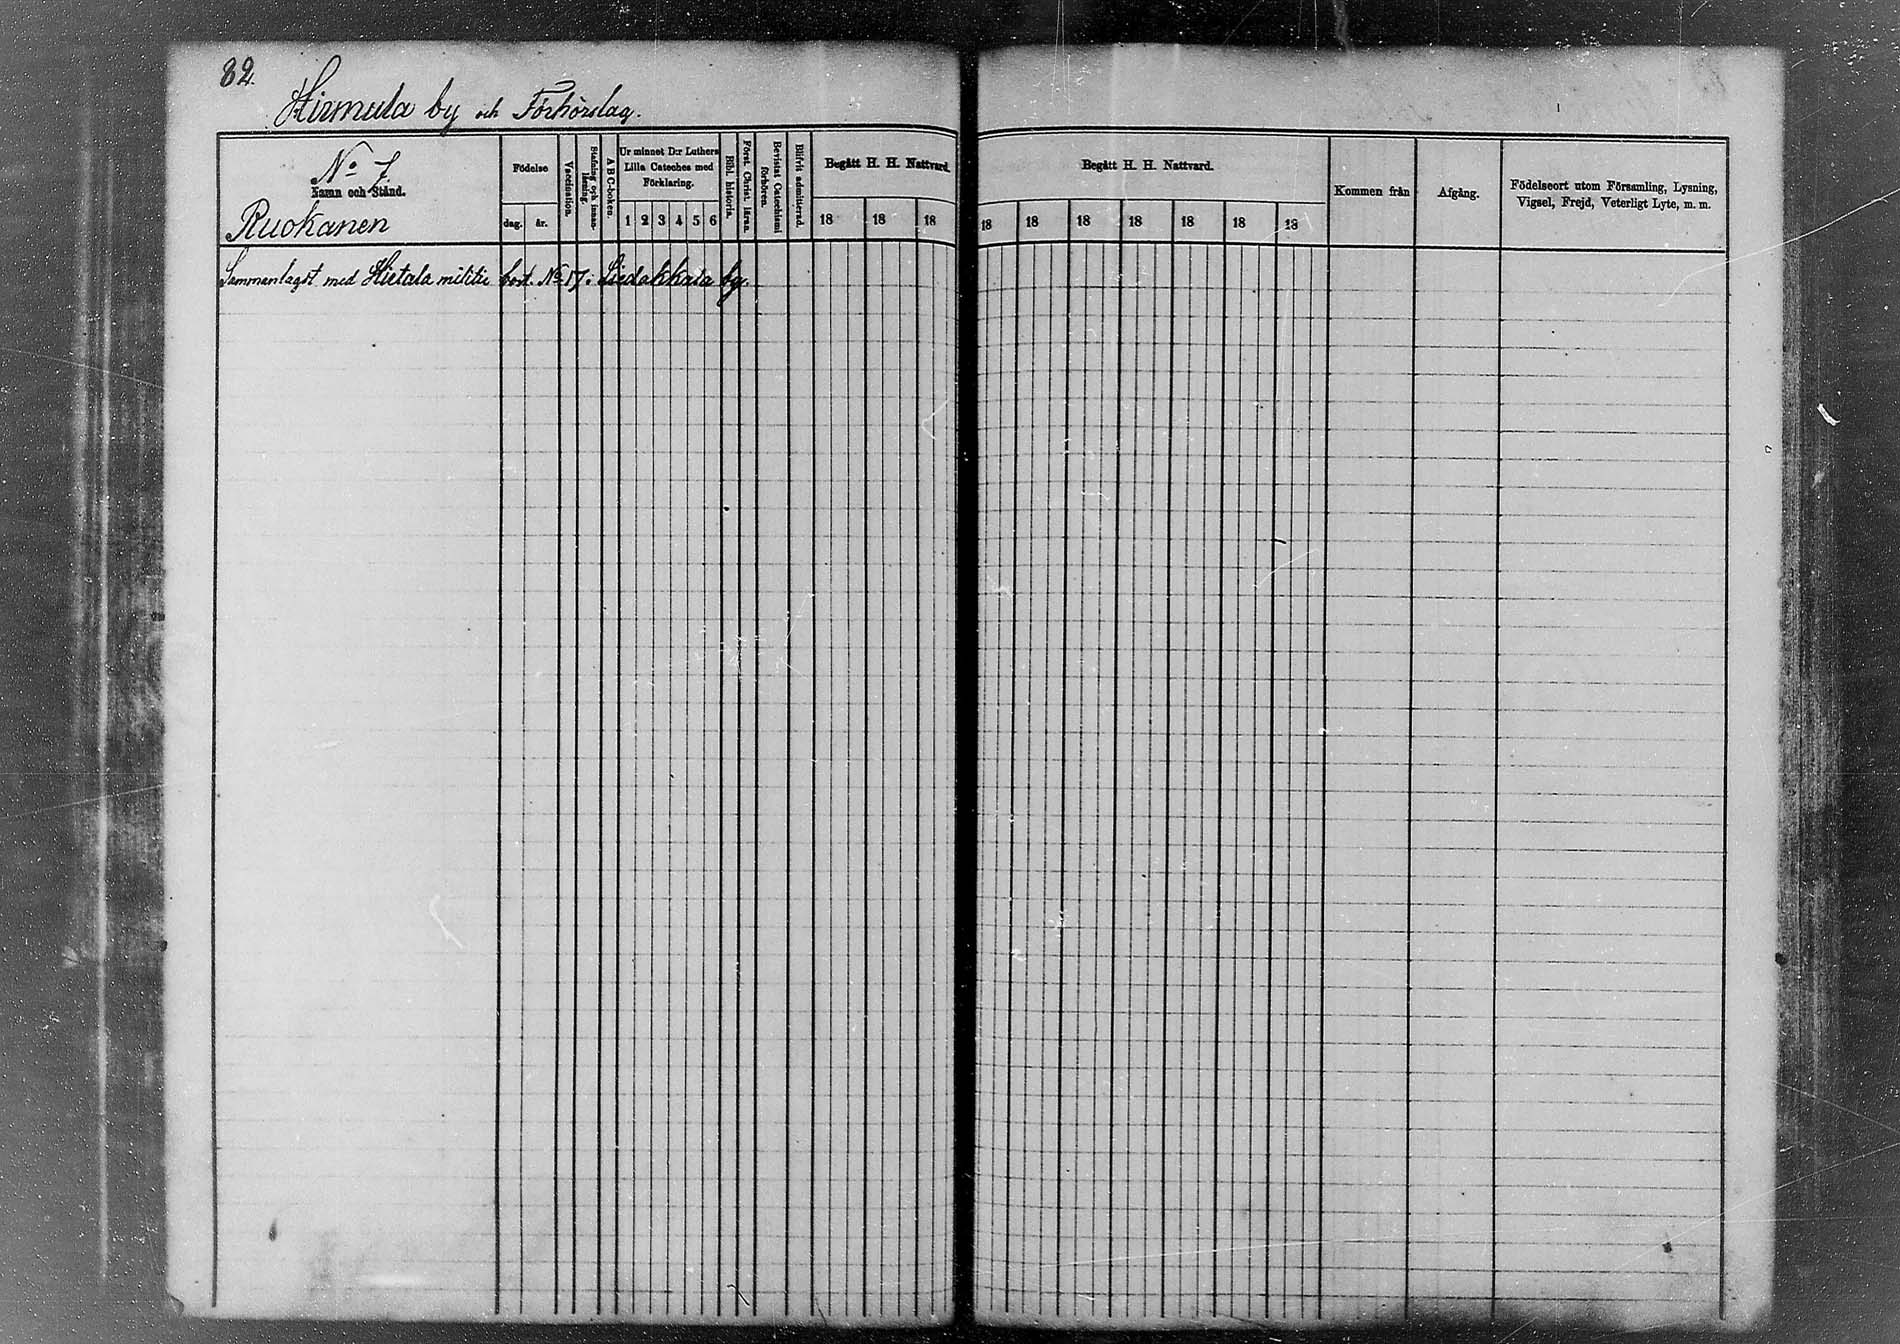 82.
Hirmula by och Förhörslag.
No 7.
Namn och Stånd.
Ruokanen
Födelse
dag. år.
Vaccination.
Stafning och innan-
läsning.
ABC-boken.
Ur minnet D:r Luthers
Lilla Cateches med
Förklaring.
1 2 3 4 5 6
Bibl. historia.
Först. Christ. läran.
Bevistat Catechismi
förhören.
Blifvit admitterad.
Begått H. H. Nattvard.
18 18 18
Begått H. H. Nattvard.
18 18 18 18 18 18 18
Kommen från
Afgång.
Födelseort utom Församling, Lysning,
Vigsel, Frejd, Veterligt Lyte, m. m.
Sammanlagdt med Hietala militie bost. No 17 i Liedakkala by.